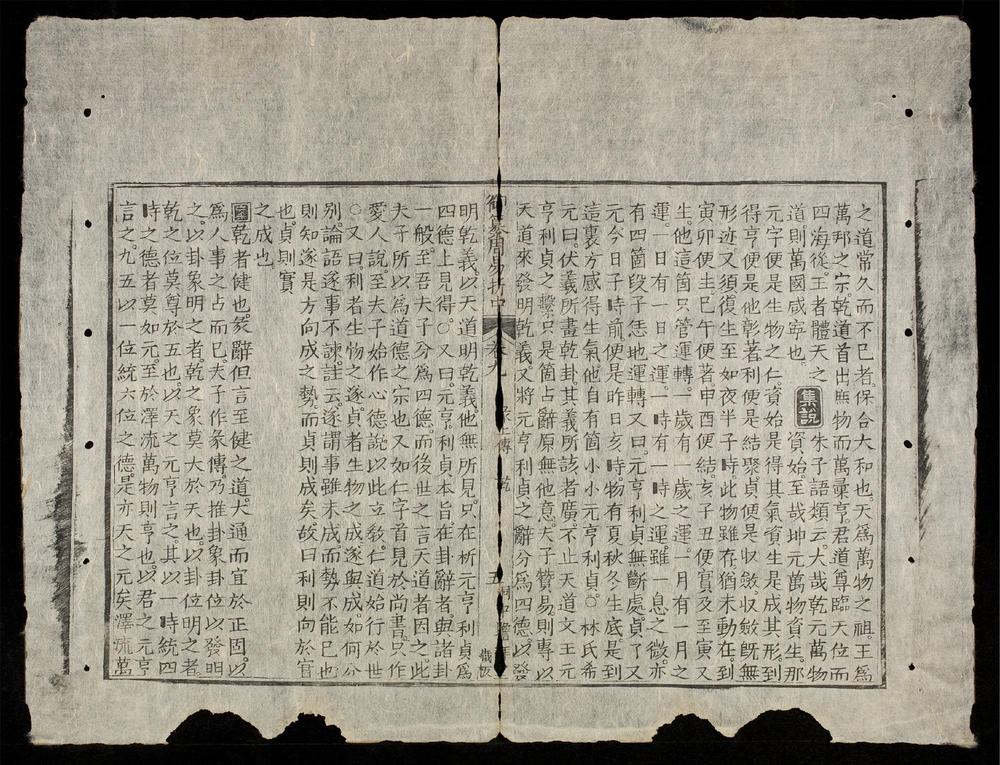 之道常久而不已者。保合大和也。天爲萬物之祖。王爲
萬邦之宗。乾道首出庶物而萬彙亨。君道尊臨天位而
四海後。王者體天之
道。則萬國咸寧也。
集說
朱子語類云。大哉乾元萬物
資始。至哉坤元萬物資生。那
元字便是生物之仁。資始是得其氣。資生是成其形。到
得亨便是他彰著。利便是結聚。貞便是收斂。收斂旣無
形迹。又須復生。至如夜半子時。此物雖存。猶未動在。到
寅卯便生。巳午便著。申酉便結。亥子丑便實。及至寅又
生。他這箇只管運轉。一歲有一歲之運。一月有一月之
運。一日有一日之運。一時有一時之運。雖一息之微。亦
有四箇段子恁地運轉。又曰。元亨利貞無斷處。貞了又
元。今日子時前。便是昨日亥時。物有夏秋冬生底。是到
這裏方感得生氣。他自有箇小小元亨利貞。○林氏希
元曰。伏義所畫乾卦。其義所該者廣。不止天道。文王元
亨利貞之繫。只是箇占辭。原無他意。夫子贊易。則專以
天道來發明乾義。又將元亨利貞之辭。分爲四德。以發
御纂周易折中 卷九 彖上傳 乾 五
明乾義。以天道明乾義。他無所見。只在析元亨利貞爲
四德上見得。○又曰。元亨利貞本旨。在卦辭者。與諸卦
一般。至吾夫子分爲四德。而後世之言天道者因之。此
夫子所以爲道德之宗也。又如仁字。首見於尚書。只作
愛人說。至夫子始作心德說。以此立敎。仁道始行於世。
○又曰。利者生物之遂。貞者生物之成。遂與成。如何分
別。論語遂事不諫。註云。遂謂事雖未成。而勢不能已也。
則知遂是方向成之勢。而貞則成矣。故曰利則向於實
也。貞則實
之成也。
乾者健也。彖辭但言至健之道。大通而宜於正固。以
爲人事之占而已。夫子作彖傳。乃推卦象卦位以發明
之。以卦象明之者。乾之象莫大於天也。以卦位明之者。
乾之位莫尊於五也。以天之元亨言之。其以一時統四
時之德者莫如元。至於澤流萬物則亨也。以君之元亨
言之。九五以一位統六位之德。是亦天之元矣。澤流萬